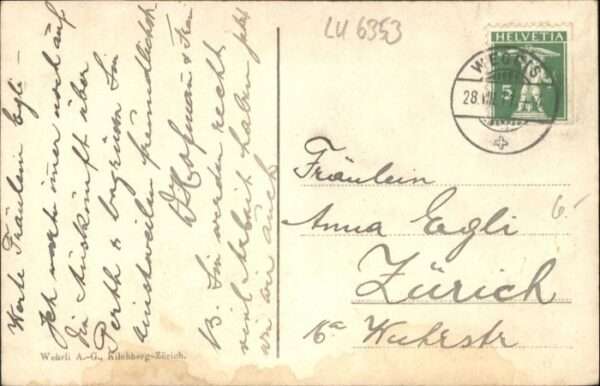 Werte Fräulein Egli –
Ich warte immer noch auf
die Auskunft über
Perth & begrüsse Sie
einstweilen freundlichst
Hofmann & Frau
NB. Sie werden recht
viel Arbeit haben jetzt
wir auch
Wehrli A.-G., Kilchberg-Zürich.
LU 6353
HELVETIA
5
WEGGIS
28. VII.
Fräulein
Anna Egli
Zürich
Wuhrstr
6.-